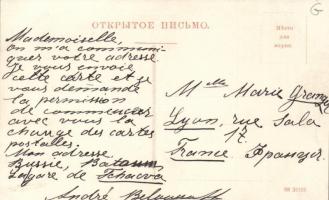 ОТКРЫТОЕ ПИСЬМО.
Mademoiselle,
on m'a communi-
quer votre adresse.
Je vous envoie
cette carte et je
vous demande
la permission
de commencer
avec vous la
change des cartes
postales.
Mon adresse
Russie, Batoum
la gare de
André
Мѣсто
для
марки.
Mlle Marie
Lyon, rue Sala
17.
France. Франція.